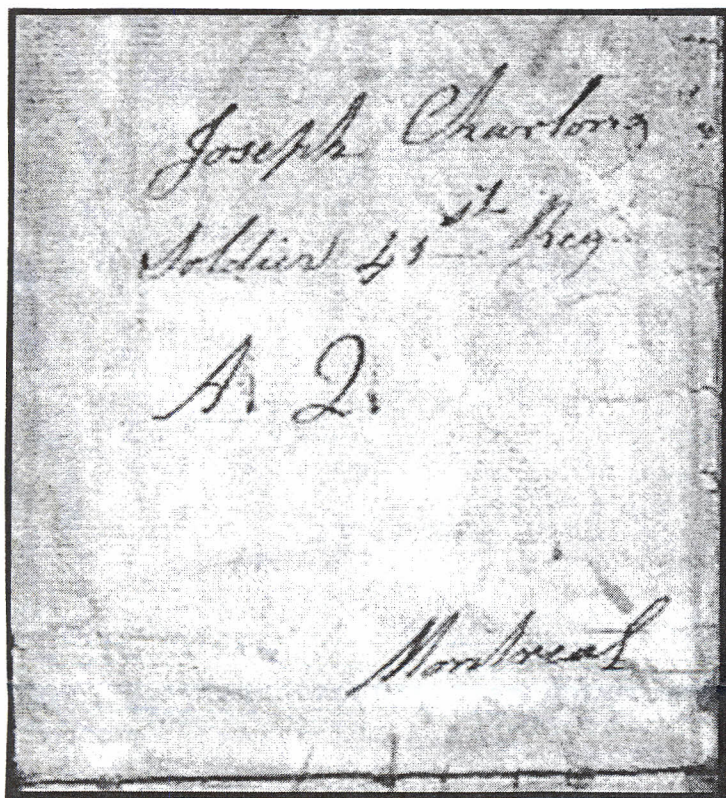 Joseph Charlong
Soldier 41st Reg
A. Q.
Montreal